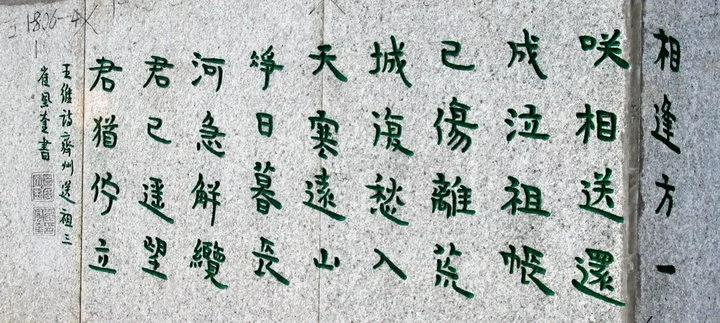 相逢方一
咲相送還
成泣祖帳
已傷離荒
城復愁入
天寒遠山
淨日暮長
河急解纜
君已遥望
君猶佇立
王維詩齊州送祖三